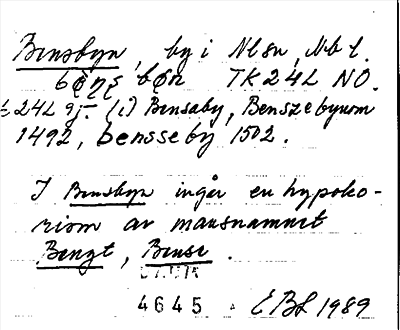 Bensbyn, by i Nlsn, Nbl.
TK 24L NO.
24L 9j. (i) Bensaby, Benszebynom
1492, bensseby 1502.
I Bensbyn ingår en hypoko-
rism av mansnamnet
Bengt, Bense.
4645 EBL 1989